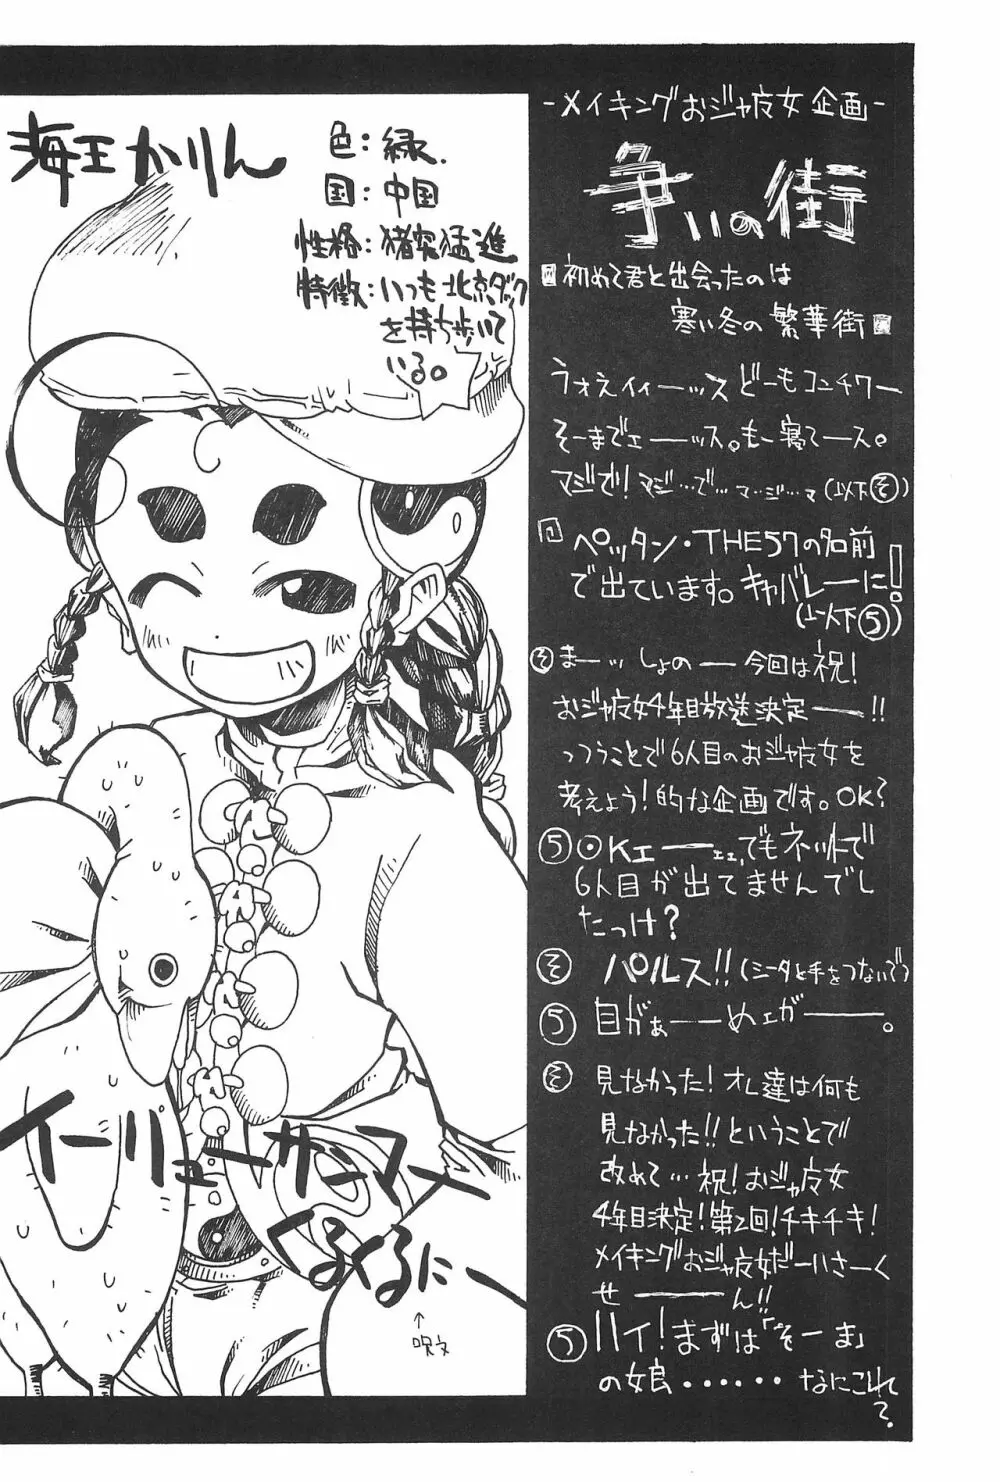 海王かりん
色:緑.
国:中国
性格:猪突猛進
特徴:いつも北京ダック
を持ち歩いて
いる。
イーリューザーマー
くるくるにー
↑
呪文
-メイキングおジャ魔女企画-
争いの街
初めて君と出会ったのは
寒い冬の繁華街
ウォえイィーッス どーもコンチワー
そーまでェーッス。もー寝てース。
マジで!マジ…で…マ…ジ…マ(以下そ)
ペッタン・THE57の名前
で出ています。キャバレーに!
(以下5)
そ まーッしょのー今回は祝!
おジャ魔女4年目放送決定ー!!
っつうことで6人目のおジャ魔女を
考えよう!的な企画です。OK?
5 OKェーェェ,でもネット上で
6人目が出てませんでし
たっけ?
そ バルス!!(シータと手をつないで)
5 目がぁーめェがー。
そ 見なかった!オレ達は何も
見なかった!!ということで
改めて…祝!おジャ魔女
4年目決定!第2回!チキチキ!
メイキングおジャ魔女だーいさーく
せーん!!
5 ハイ!まずは「そーま」
の娘・・・・・・なにこれ
?